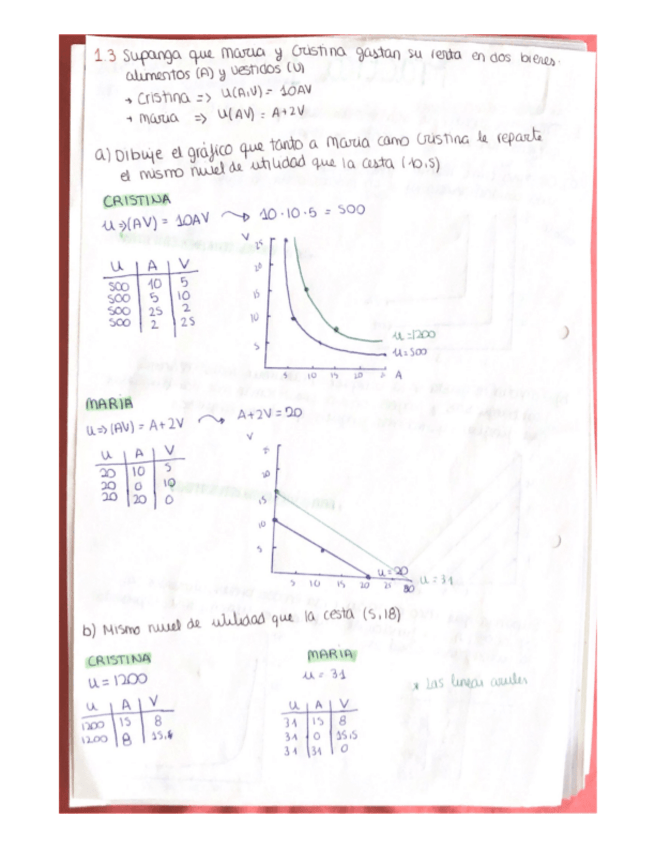 1.3 Supanga que Maria y Cristina gastan su renta en dos bienes.
alimentos (A) y vestidos (V)
→ Cristina => U(A,V) = 10AV
→ Maria => U(AV) = A+2V
a) Dibuje el gráfico que tanto a Maria como Cristina le reparte
el mismo nivel de utilidad que la cesta (10,5)
CRISTINA
U=>(AV) = 10AV → 10·10·5 = 500
U A V
500 10 5
500 5 10
500 25 2
500 2 25
V
25
20
15
10
5
u=1200
u=500
5 10 15 20 A
MARIA
u=>(AV) = A+2V → A+2V=20
U A V
20 10 5
20 0 10
20 20 0
V
20
15
10
5
u=20
u=31
5 10 15 20 25 30
b) Mismo nivel de utilidad que la cesta (5,18)
CRISTINA
u=1200
U A V
1200 15 8
1200 8
MARIA
u=31
U A V
31 15 8
31 0 15,5
31 31 0
* Las lineas